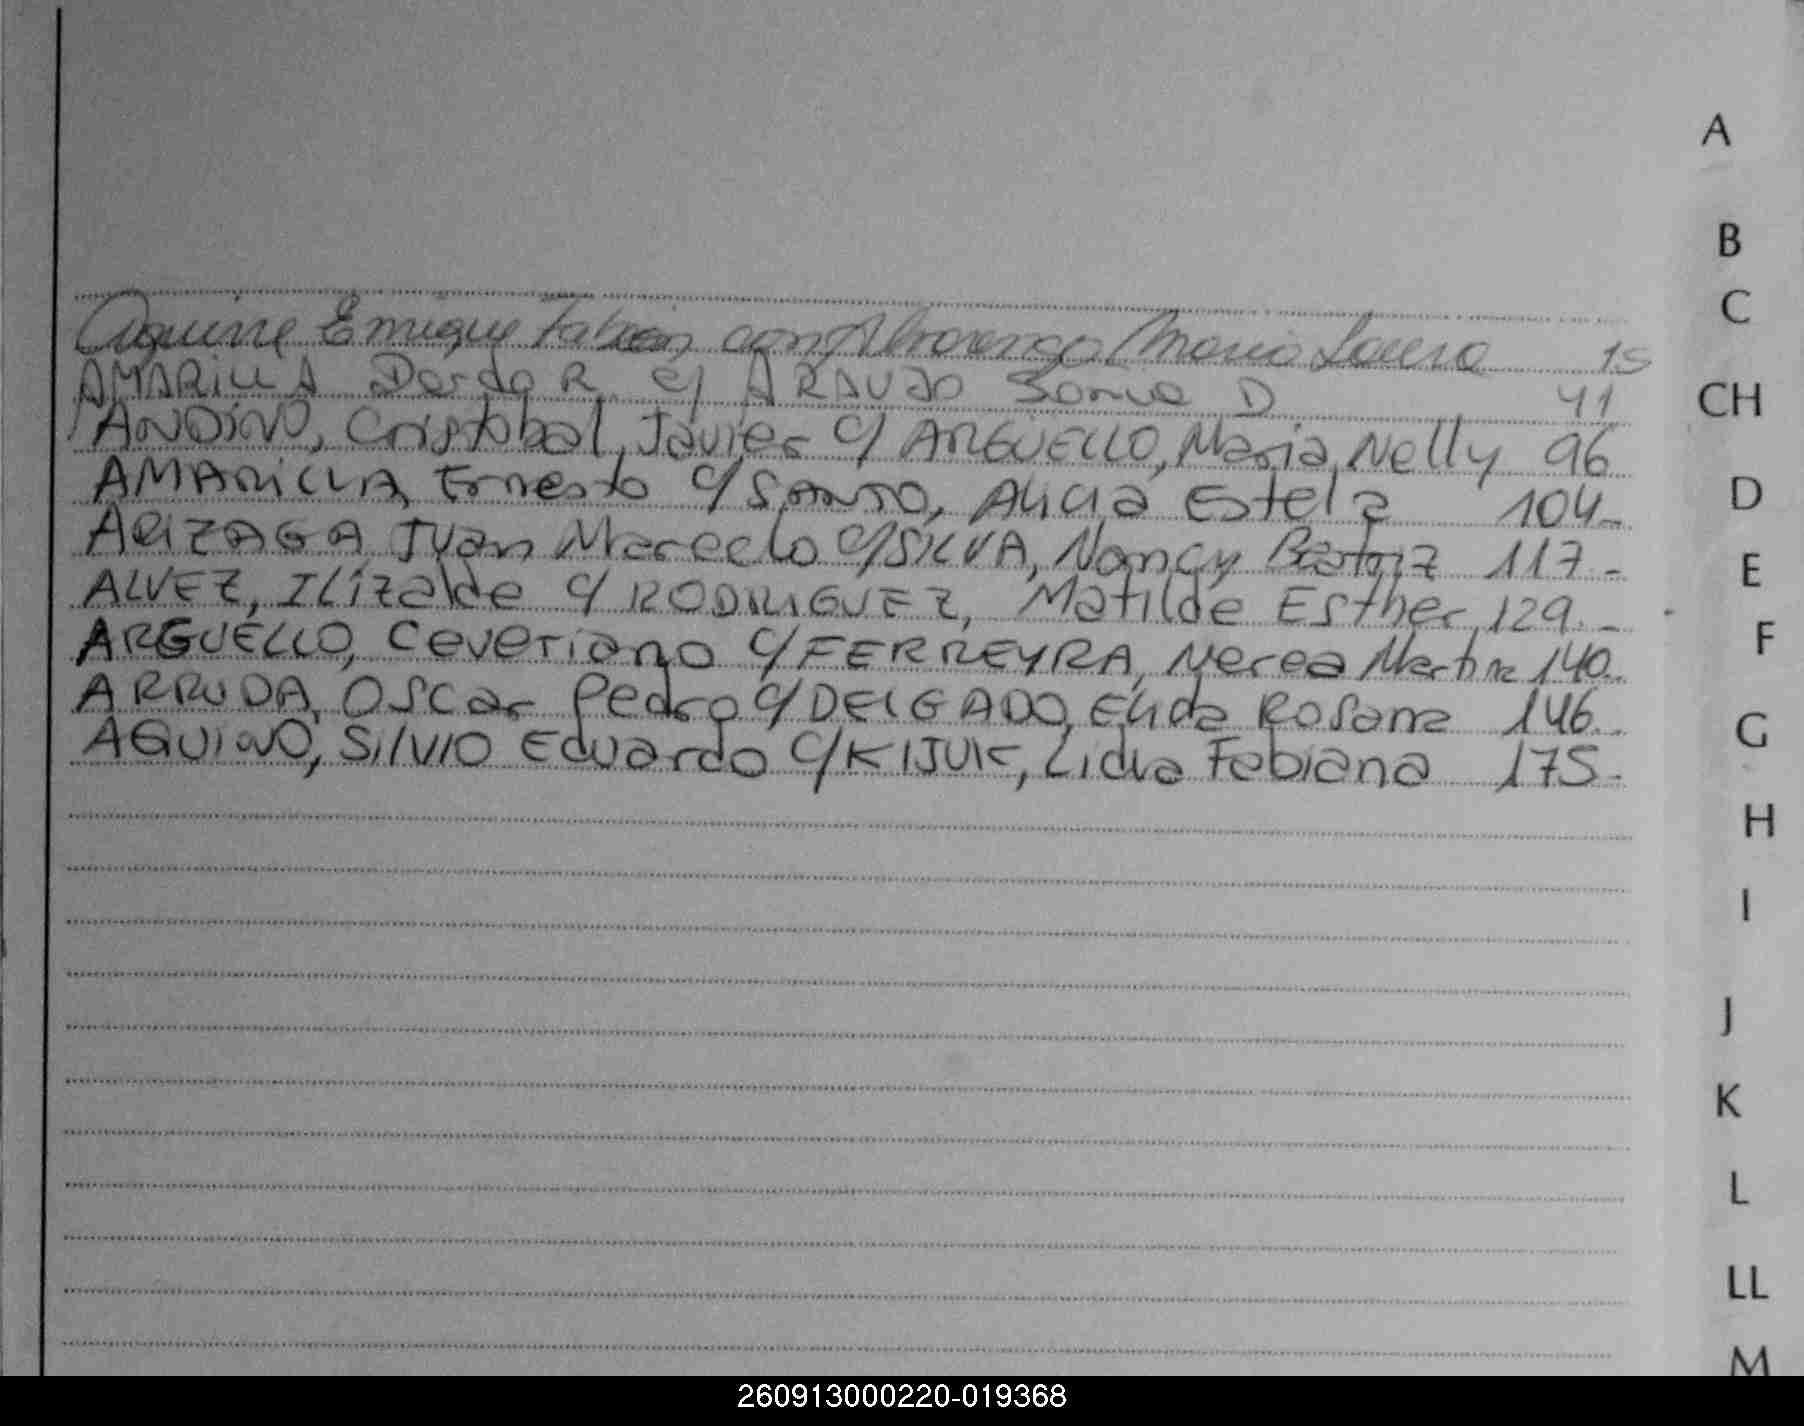 Aguirre Enrique Fabian con Albarenga Maria Laura 15
AMARILLA Dardo R. c/ ARAUJO Sonia D 41
ANDINO, Cristobal, Javier c/ ARGÜELLO, Maria, Nelly 96
AMARILLA, Ernesto c/ SANTO, Alicia Estela 104-
ARIZAGA, Juan Marcelo c/ SILVA, Nancy Beatriz 117-
ALVEZ, Ilizalde c/ RODRIGUEZ, Matilde Esther, 129.-
ARGUELLO, Ceveriano c/ FERREYRA, Nerea Martina 140.
ARRUDA, Oscar Pedro c/ DELGADO, Elida Rosana 146.
AQUINO, Silvio Eduardo c/ KIJUK, Lidia Fabiana 175-
A
B
C
CH
D
E
F
G
H
I
J
K
L
LL
M
260913000220-019368